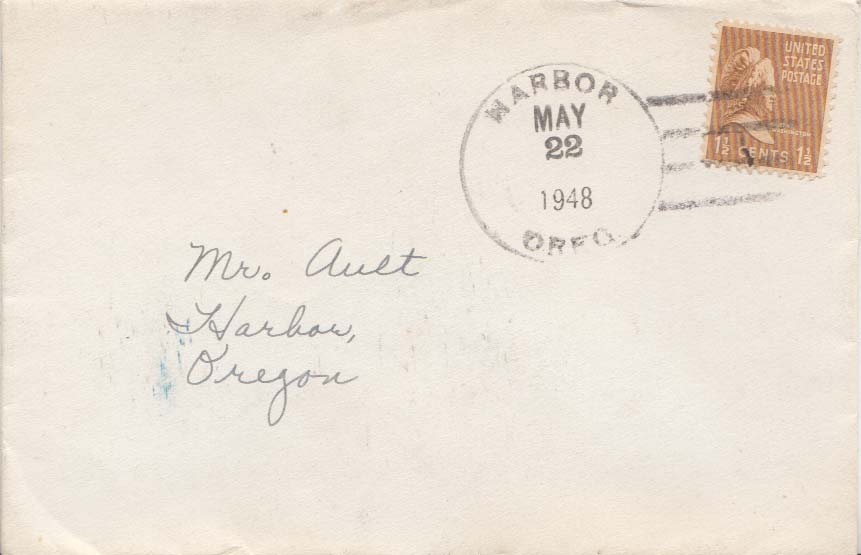 HARBOR
MAY
22
1948
OREG.
UNITED
STATES
POSTAGE
WASHINGTON
1½ CENTS 1½
Mr. Ault
Harbor,
Oregon